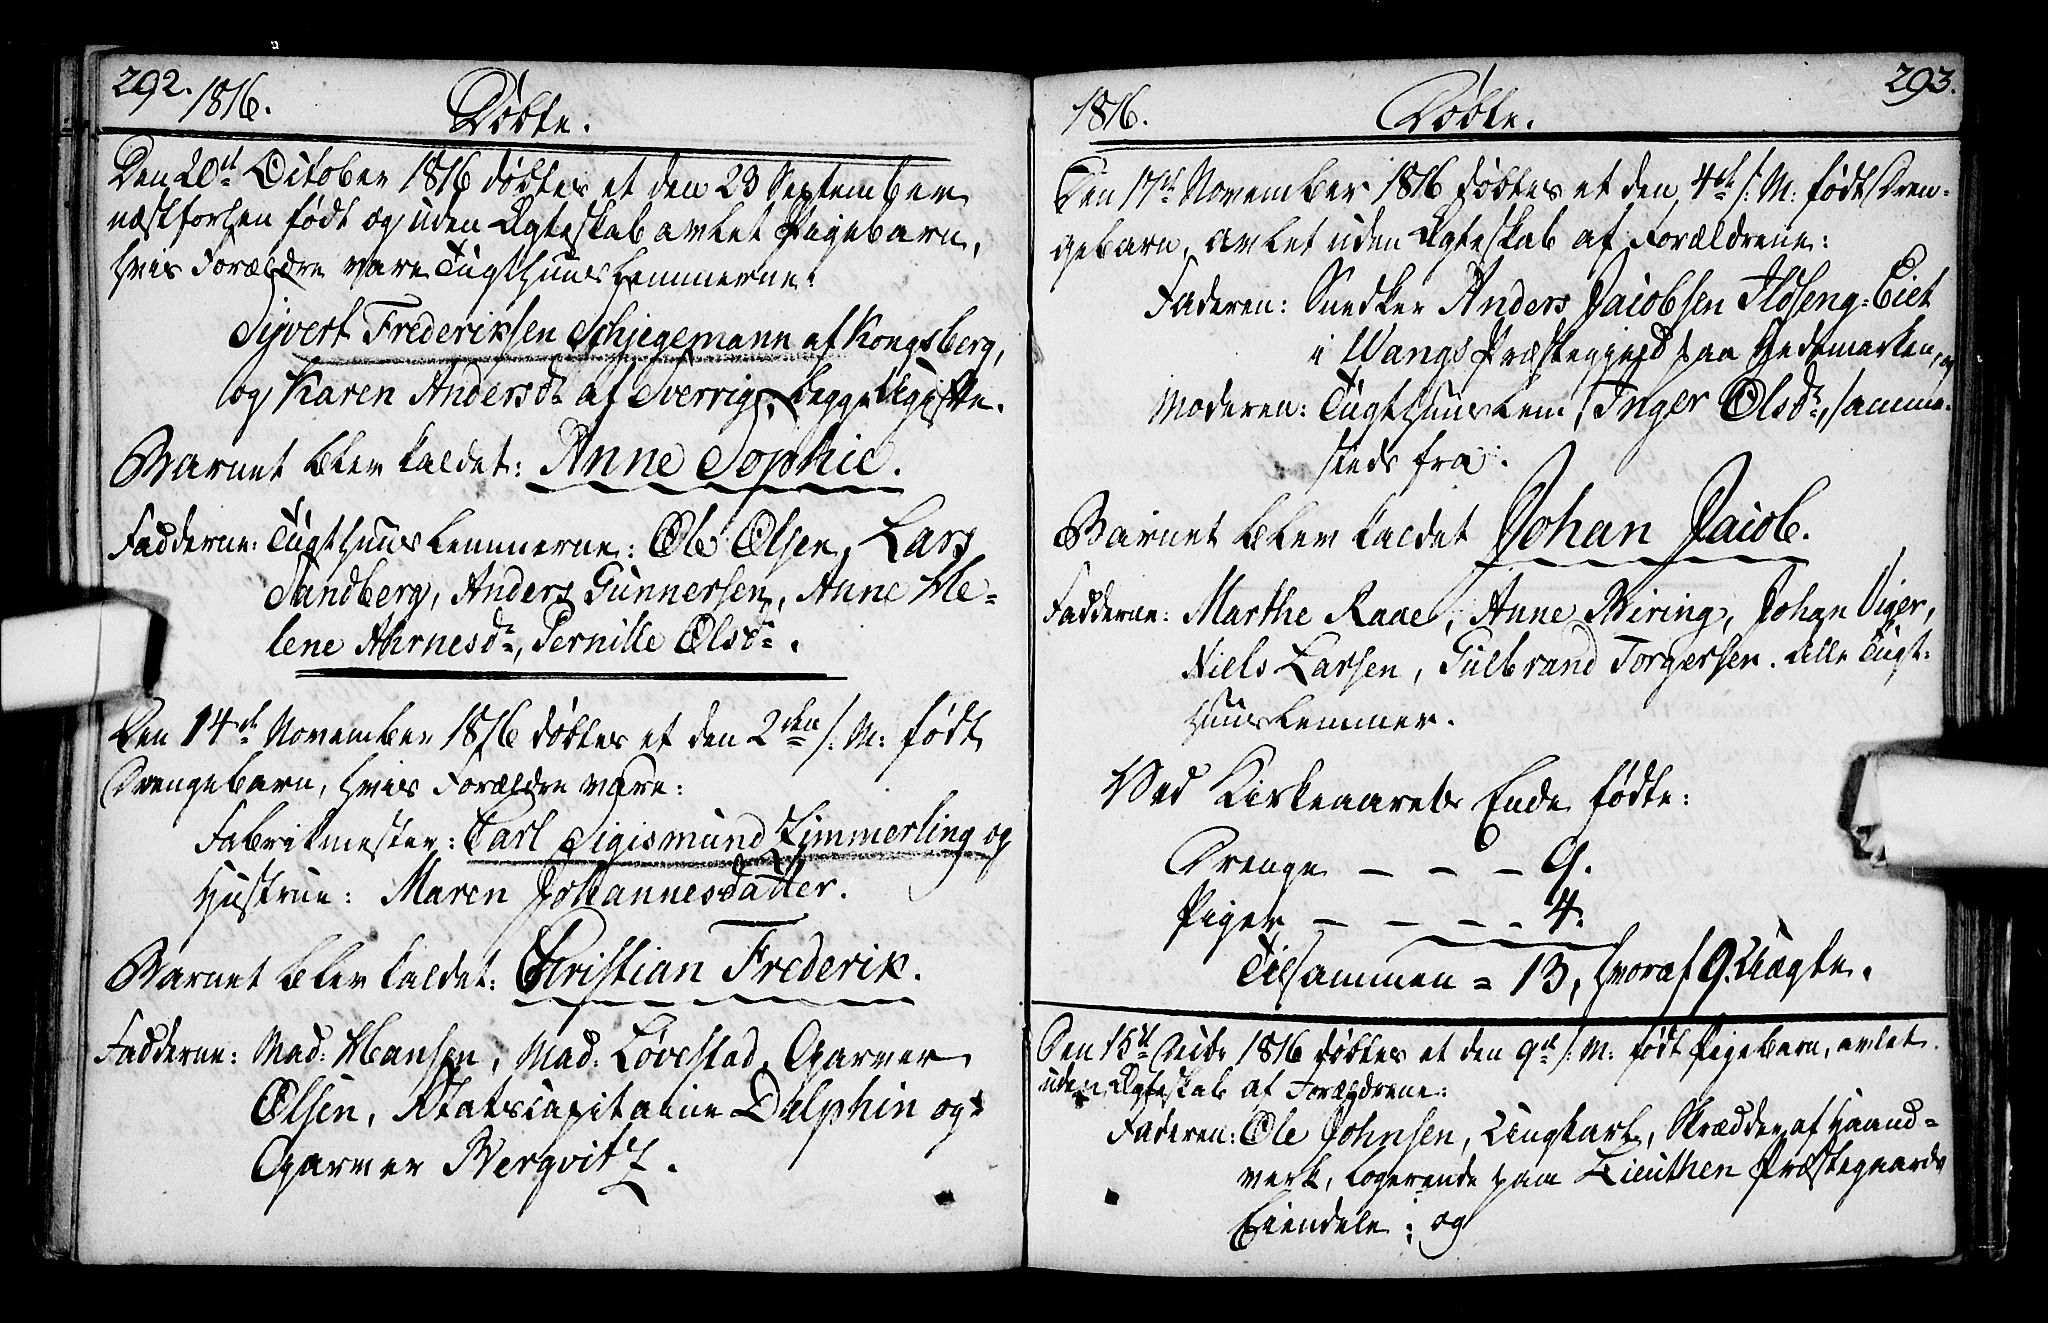 292.
1816. Döbte.
Den 20de October 1816 döbtes et den 23 September
næstforhen födt og uden Ægteskab avlet Pigebarn,
hvis Forældre vare Tugthuuslemmerne:
Syvert Frederiksen Schjegemann af Kongsberg,
og Karen Andersdr af Sverrig, begge Ugivte.
Barnet blev kaldet: Anne Sophie.
Fadderne: Tugthuuslemmerne: Ole Olsen, Lars
Sandberg, Anders Gunnersen, Anne He=
lene Ahrnesdr, Pernille Olsdr.
Den 14de November 1816 döbtes et den 2den s: M: födt
Drengebarn, hvis Forældre vare:
Fabrikmester: Carl Sigismund Zimmerling og
Hustrue: Maren Johannesdatter.
Barnet blev kaldet: Christian Frederik.
Fadderne: Mad: Hansen, Mad: Lövestad, Garver
Olsen, Statscapitaine Dalphin og
Garver Bergvitz.
293.
1816. Döbte.
Den 17de November 1816 döbtes et den 4de s: M: födt Dren=
gebarn, avlet uden Ægteskab af Forældrene:
Faderen: Snedker Anders Jacobsen Ildseng=Eiet
i Wangs Præstegjeld paa Hedemarken, og
Moderen: Tugthuuslem Inger Olsdr, samme=
steds fra.
Barnet blev kaldet Johan Jacob.
Fadderne: Marthe Raae, Anne Biring, Johan Viger,
Niels Larsen, Gulbrand Torgersen. Alle Tugt=
huuslemmer.
Ved Kirkeaarets Ende födte:
Drenge — — — 9.
Piger — — — - 4.
Tilsammen = 13, hvoraf 9 Uægte.
Den 15de Decbr 1816 döbtes et den 9de s: M: födt Pigebarn, avlet
uden Ægteskab af Forældrene:
Faderen: Ole Johnsen, Ungkarl, Skrædder af Haand=
verk, logerende paa Præstegaards
Eiendele; og